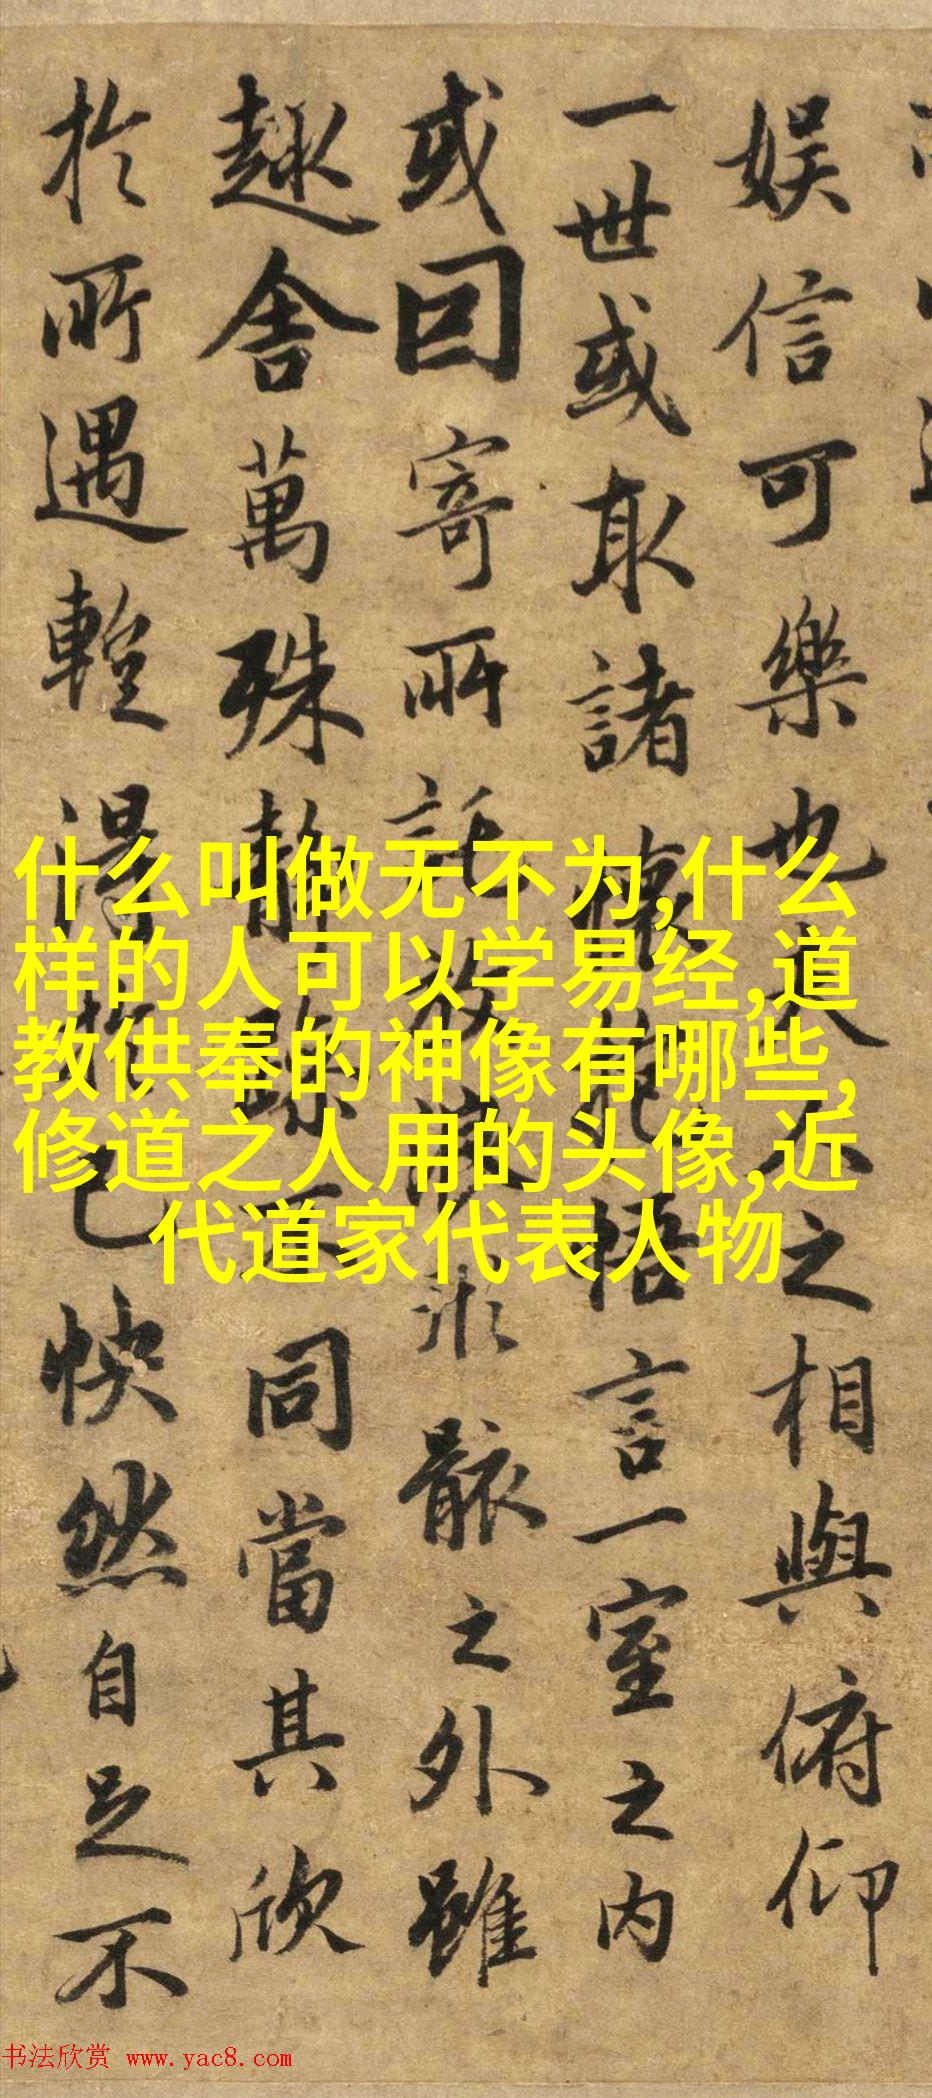 娱信可樂也夫人之相與俯仰
一世或取諸懷抱悟言一室之内
或因寄所託放浪形骸之外雖
趣舍萬殊静躁不同當其欣
於所遇蹔得於己快然自足不
什么叫做无不为,什么
样的人可以学易经,道
教供奉的神像有哪些,
修道之人用的头像,近
代道家代表人物
书法欣赏 www.yac8.com